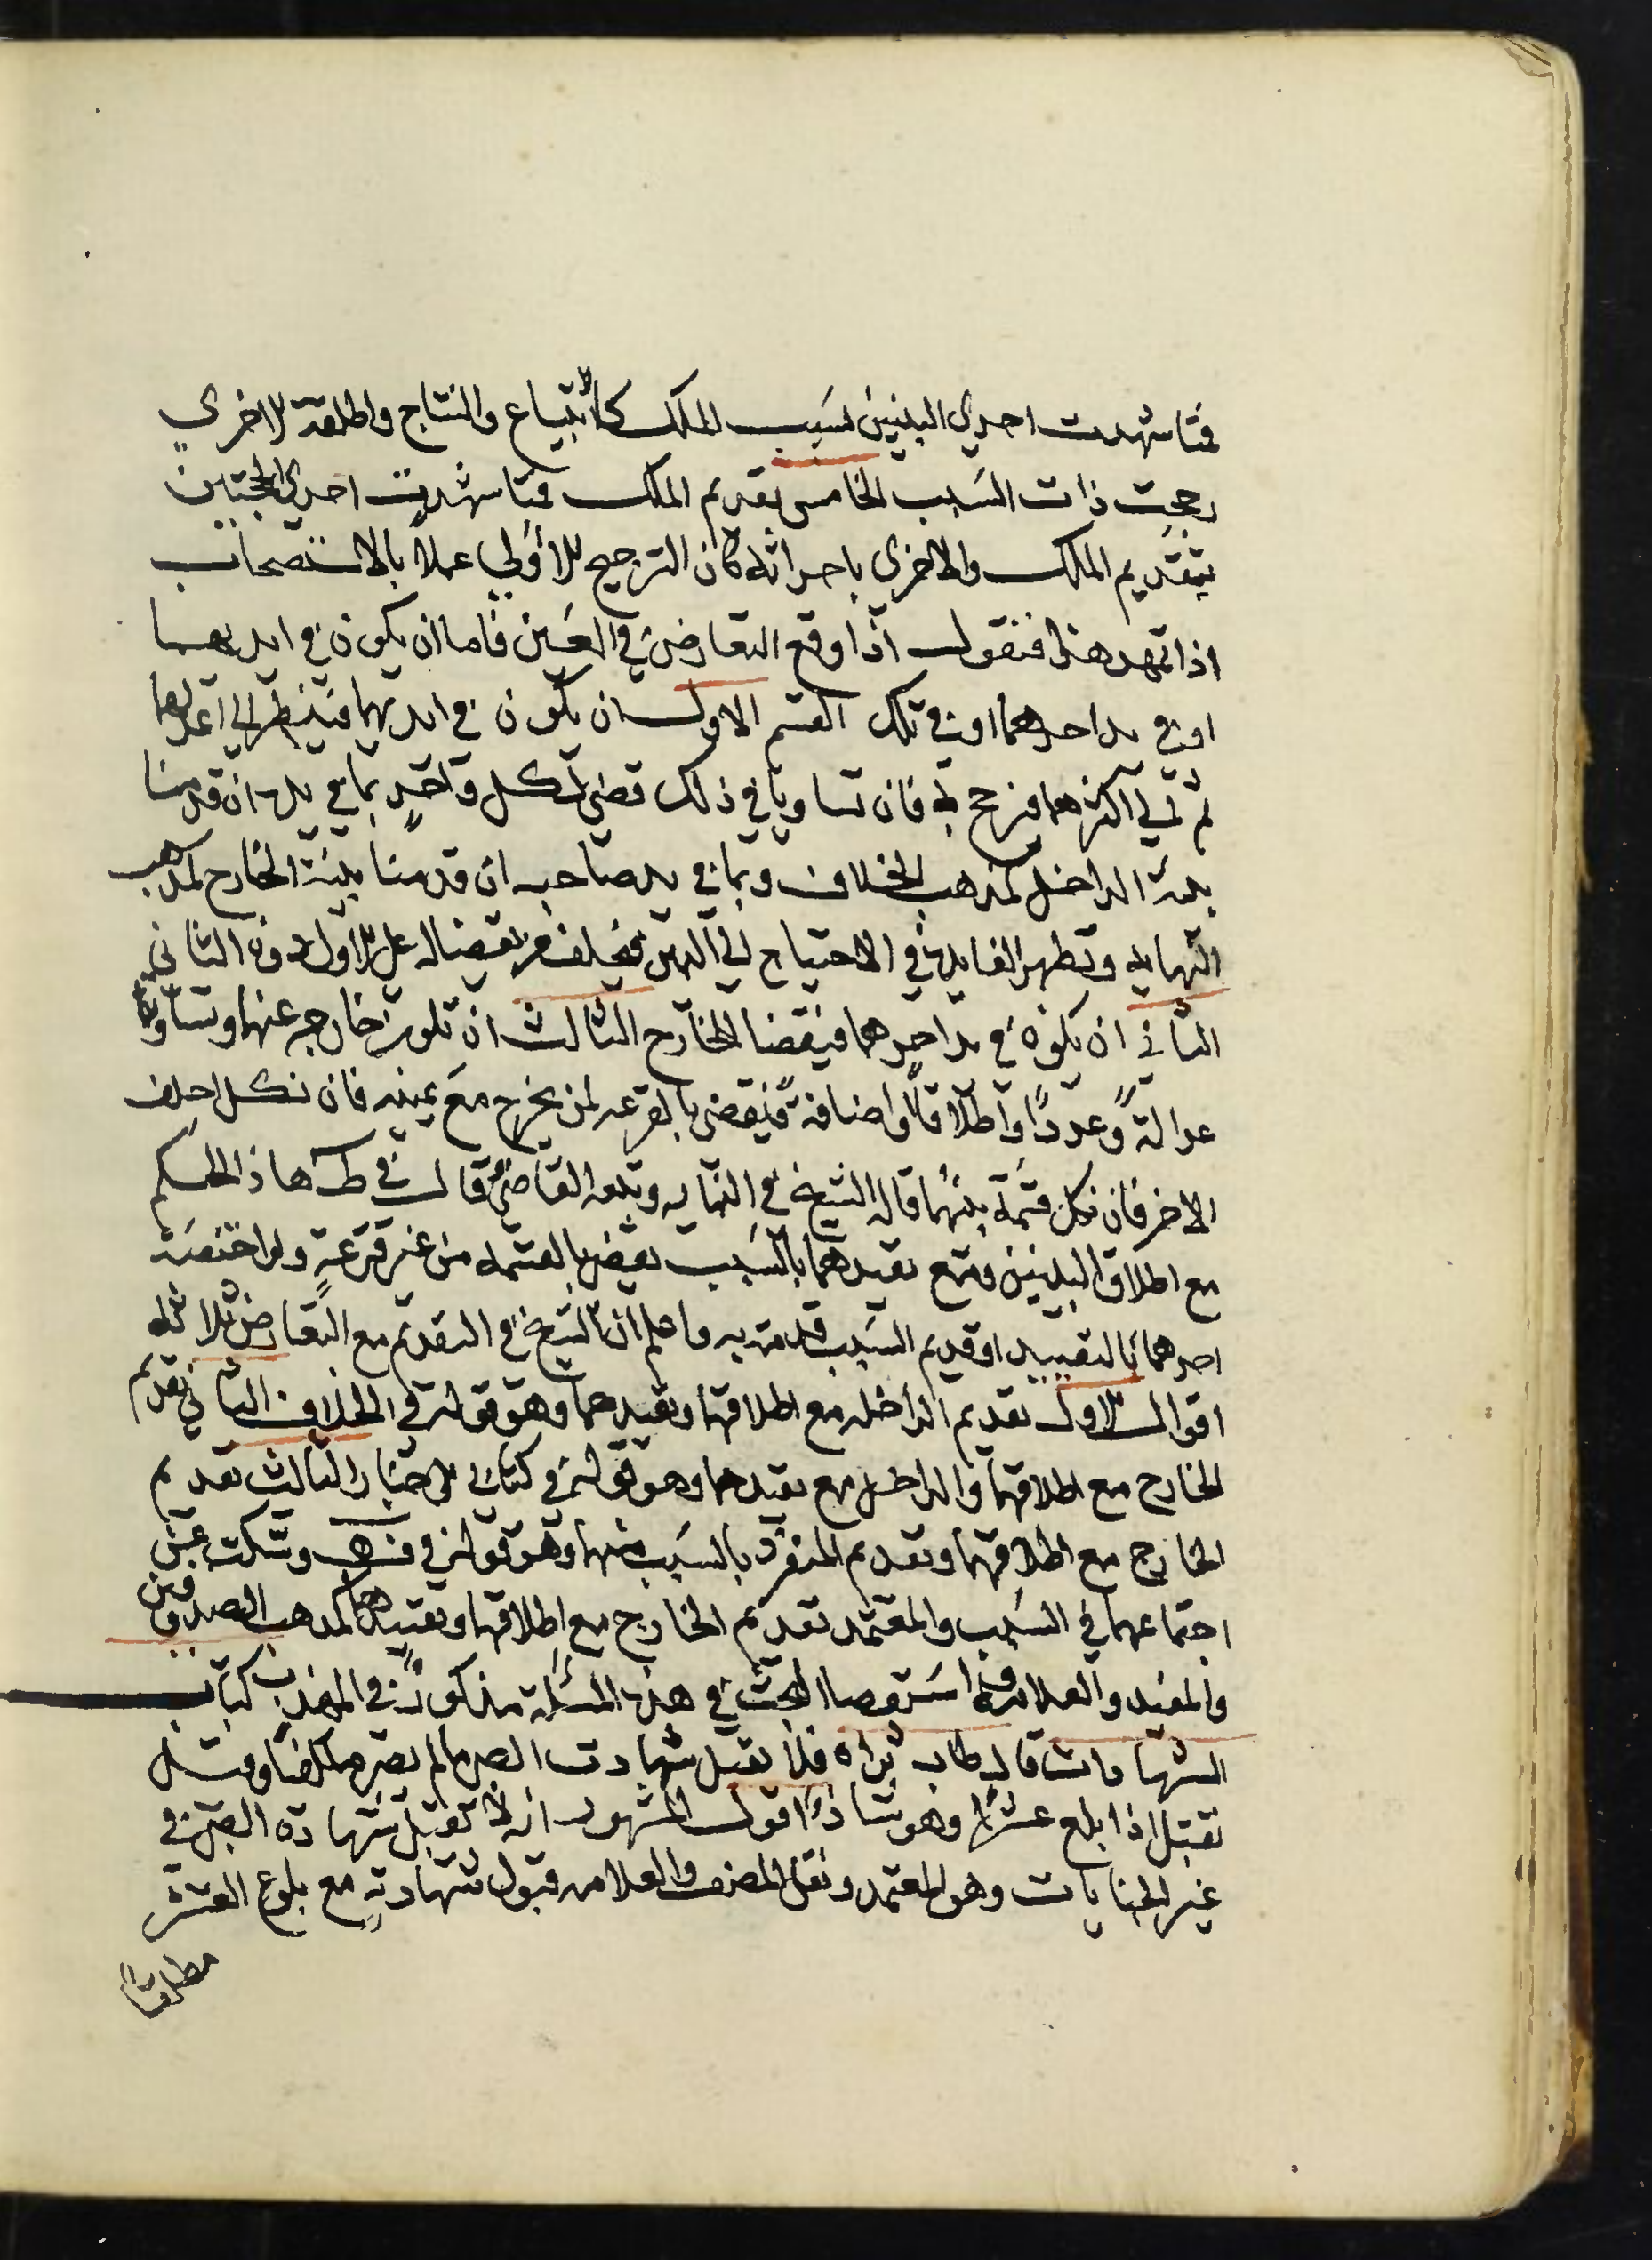 فمتا شهدت احدى البينين بسبب الملك كالابتياع والنتاج واطلقة الاخرى
رجحت ذات السبب الخامس تقديم الملك فمتا شهدت احدى الحجتين
بتقديم الملك والاخرى باحداثه كان الترجيح للاولى عملاً بالاستصحاب
اذا تمهد هذا فنقول اذا وقع التعارض في العين فاما ان يكون في ايديهما
او في يد احدهما او في تلك القسم الاول ان يكون في ايديهما فينظر الى اعدلهما
ثم الى اكثرهما فيرجح به فان تساويا في ذلك قضي لكل واحدٍ بما في يده ان قدمنا
بينة الداخل كمذهب الخلاف وبما في يد صاحبه ان قدمنا بينة الخارج كمذهب
النهايه وتظهر الفايده في الاحتياج الى اليمين فيحلف من يقضا له على الاول دون الثاني
الثاني ان يكون في يد احدهما فيقضا للخارج الثالث ان تكون خارجه عنهما وتساوتا
عدالةً وعدداً واطلاقاً واضافةً فيقضى بالقرعه لمن يخرج مع يمينه فان نكل احلف
الاخر فان نكل قسمة بينهما قاله الشيخ في النهايه وتبعه القاضي وقال في ط هاذا الحكم
مع اطلاق البينين ومع تقيدهما بالسبب يقضى بالقسمه من غير قرعةٍ ولو اختصت
احدهما بالتقييد او قديم السبب قدمت به واعلم ان للشيخ في التقديم مع التعارض ثلاثه
اقوال الاول تقديم الداخل مع اطلاقهما وتقيدهما وهو قوله في الخلاف الثاني تقديم
الخارج مع اطلاقهما والداخل مع تقيدهما وهو قوله في كتابي الاخبار الثالث تقديم
الخارج مع اطلاقهما وتقديم المنفرد بالسبب منهما وهو قوله في وسكت عن
اجتماعهما في السبب والمعتمد تقديم الخارج مع اطلاقهما وتقييدهما كمذهب الصدوقين
والمفيد والعلامه استقصا البحث في هذه المسئلة مذكور في المهذب كتاب
الشهادات قال طاب ثراه فلا تقبل شهادت الصبي مالم يصر مكلفا وقيل
تقبل اذا بلغ عشرا وهو شاذ اقول المشهور انه لا تقبل شهادة الصبي في
غير الجنايات وهو المعتمد ونقل المصنف والعلامه قبول شهادتهِ مع بلوغ العشر
مطلقاً